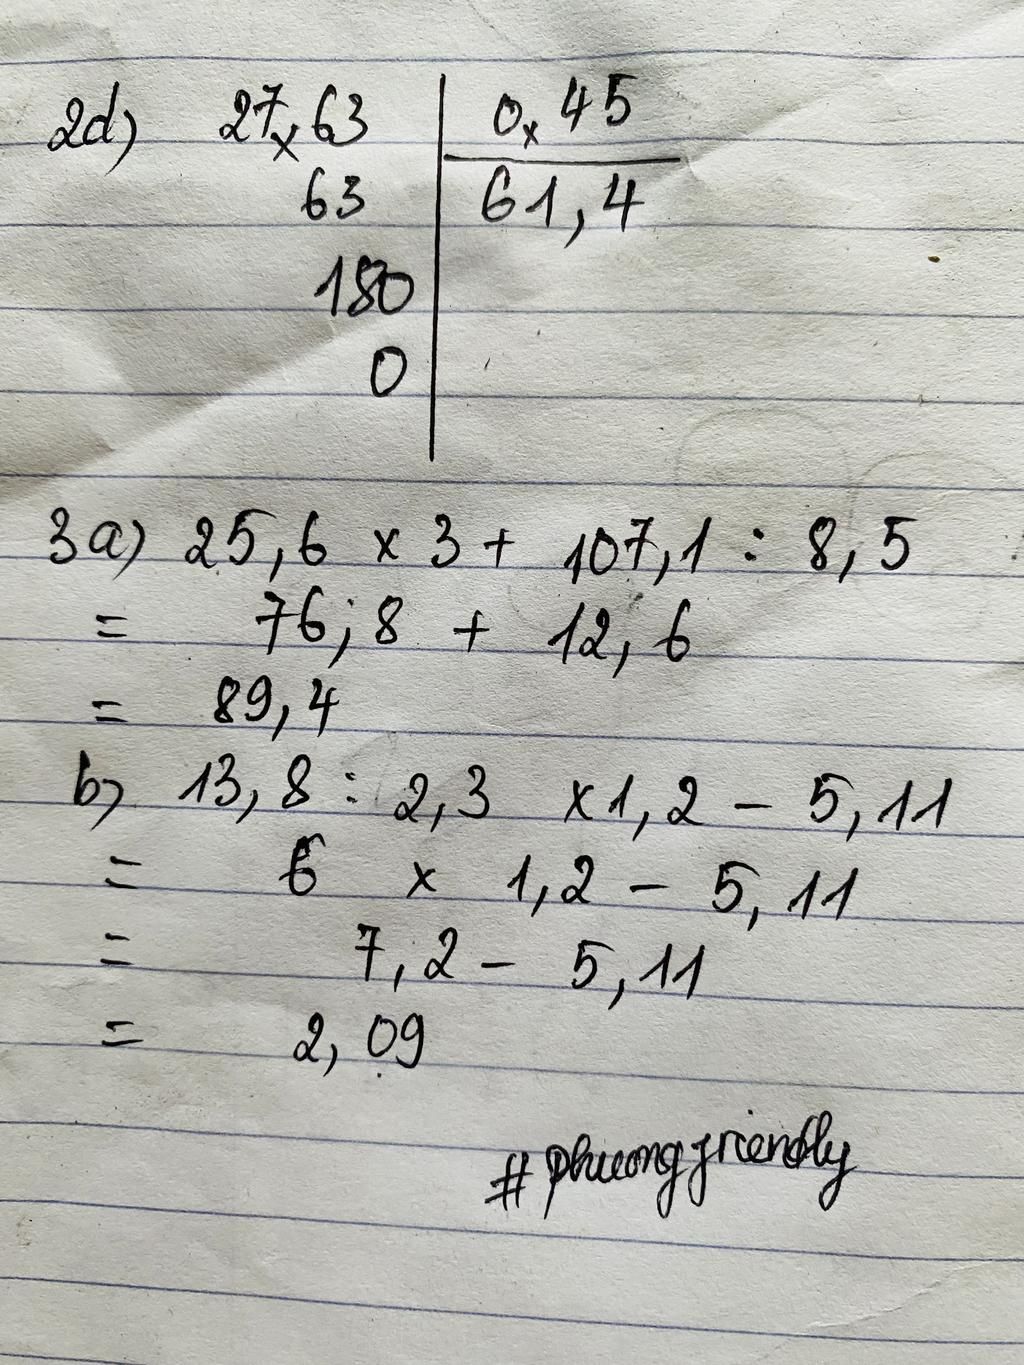 2d) 27,63 | 0,45
63 | 61,4
180
0
3a) 25,6 x 3 + 107,1 : 8,5
= 76,8 + 12,6
= 89,4
b) 13,8 : 2,3 x 1,2 - 5,11
= 6 x 1,2 - 5,11
= 7,2 - 5,11
= 2,09
#phuongfriendly